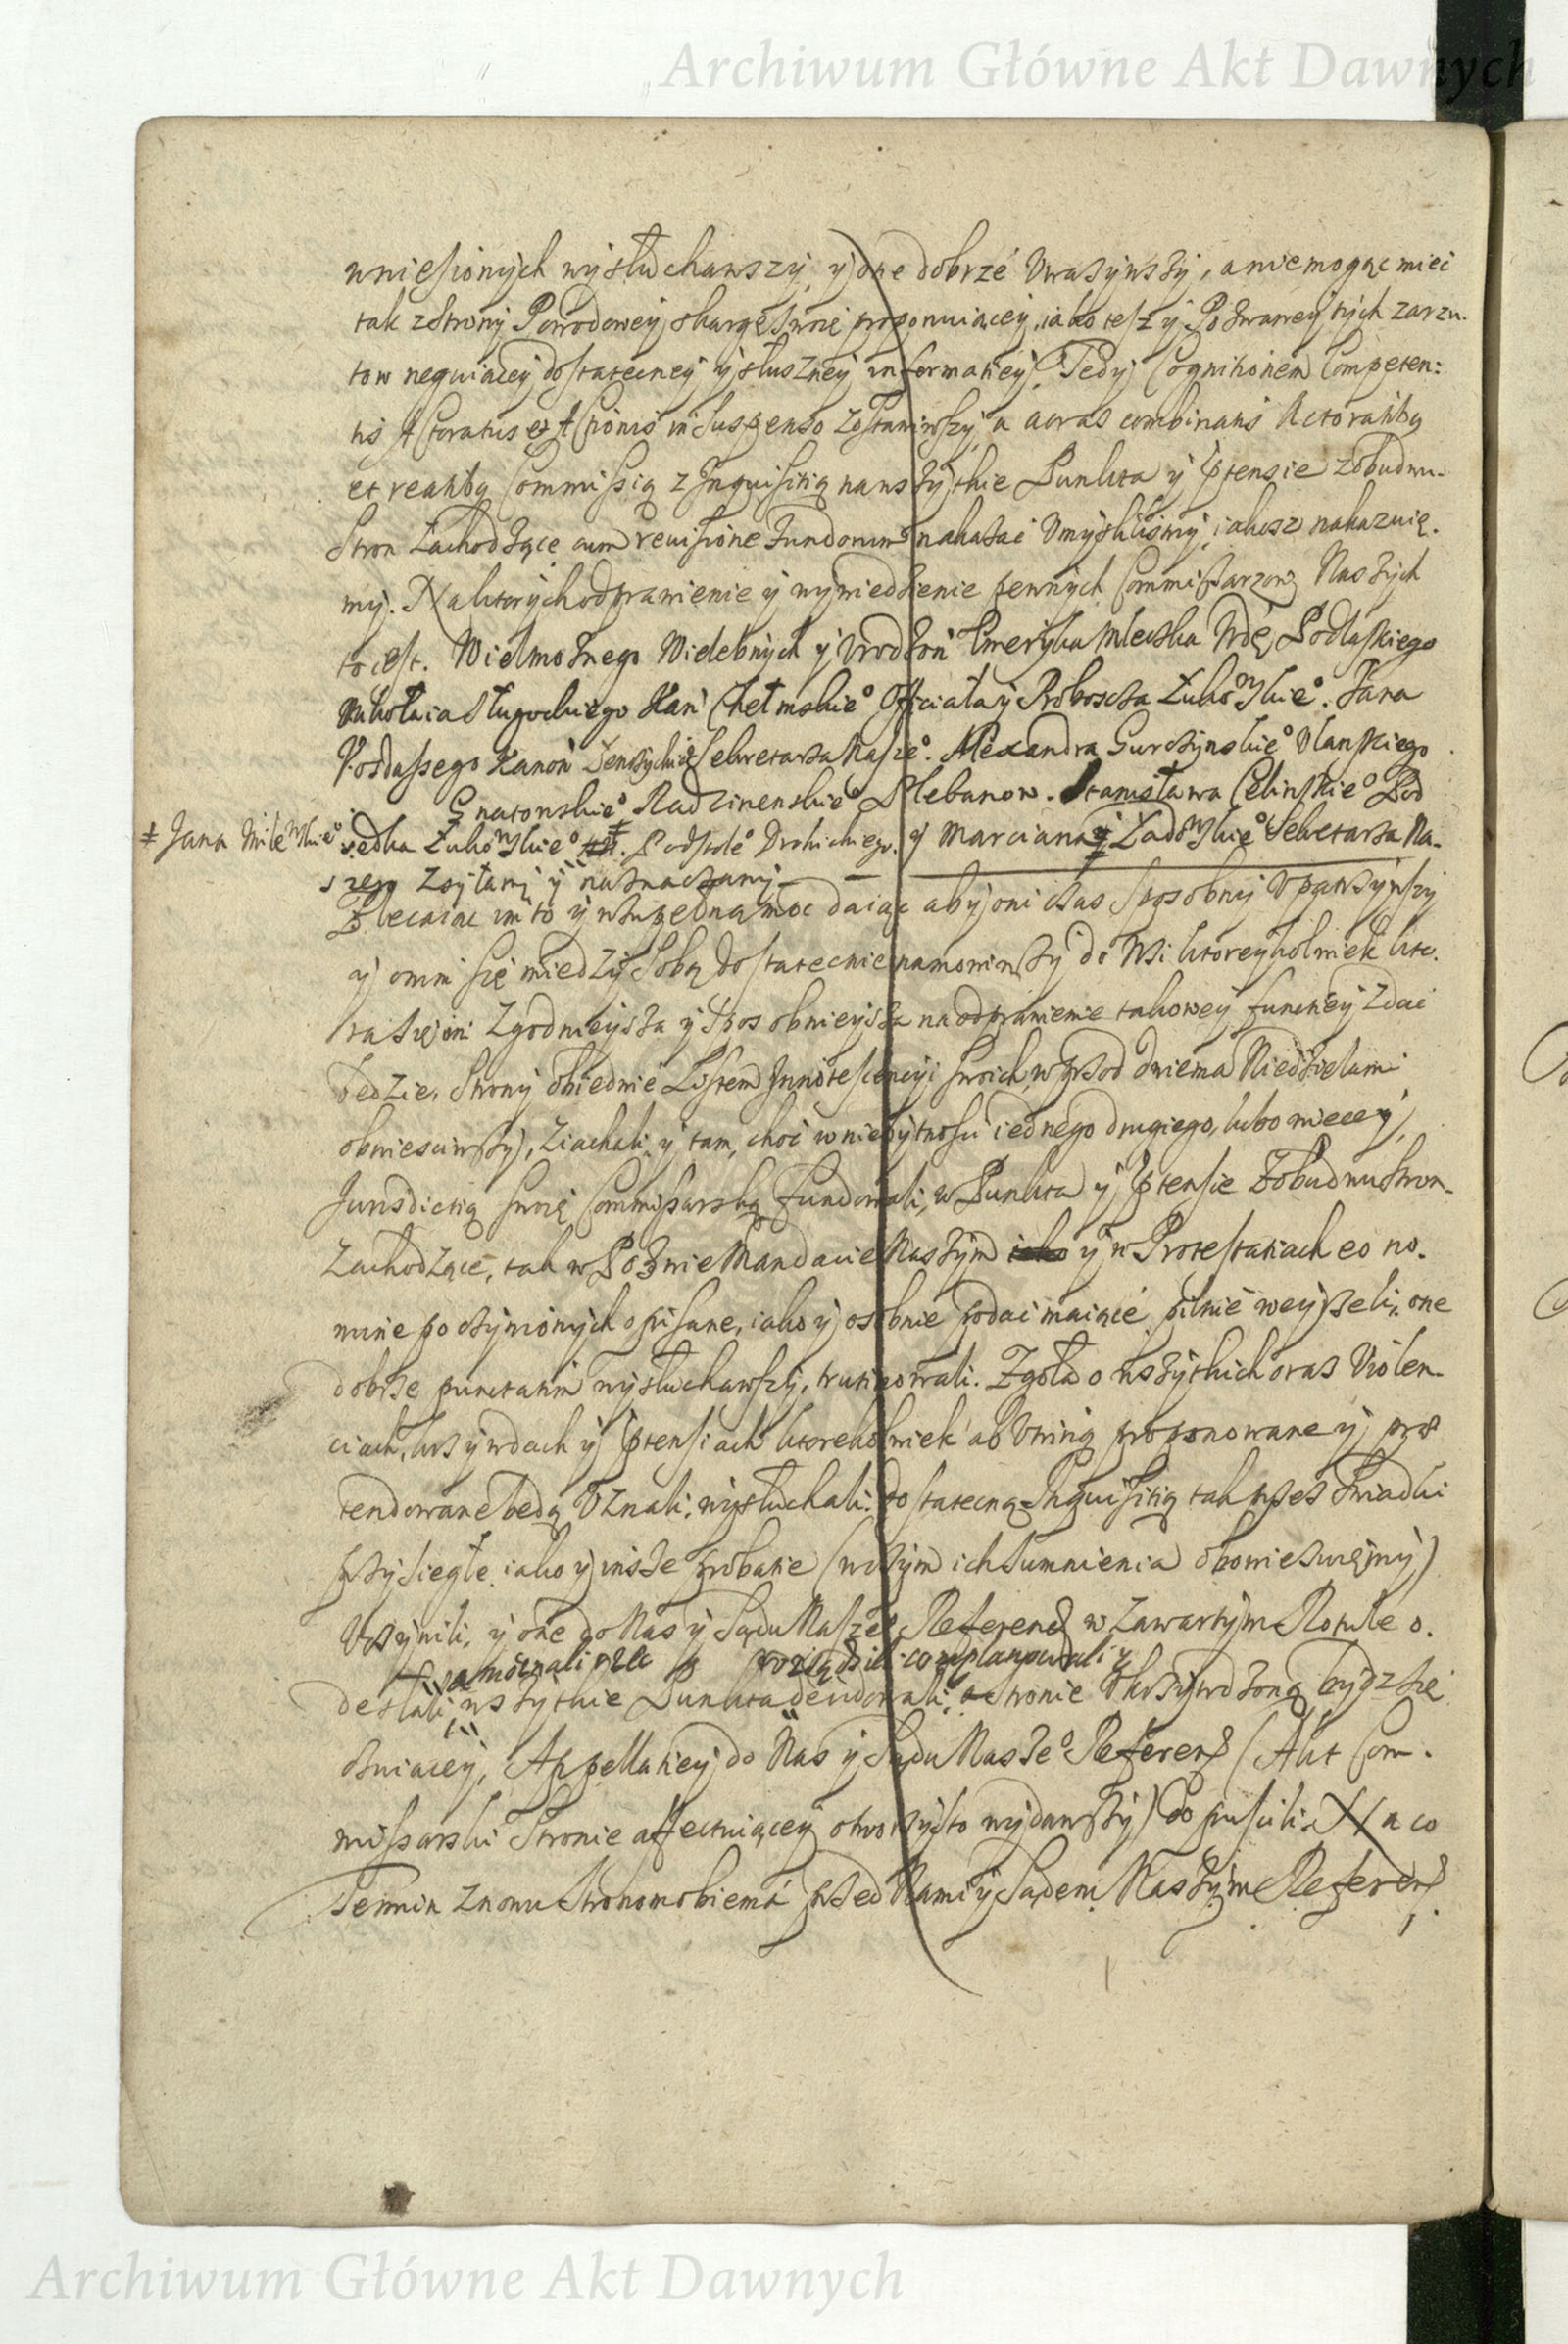 Archiwum Główne Akt Dawnych
wniesionych wysłuchawszy, y one dobrze Uważywszy, a nie mogąc miec
tak z strony Powodowey skargę swoię proponuiącey, iako też y Pozwaney tych zarzu-
tow neguiącey dostateczney y słuszney informatiey. Tedy Cognitionem Competen:
tis Actoratus et Actionis in suspenso zostawiwszy, a aoras combinatis Actoratibq
et reatibq Commissią z Inquisitią na wszytkie Punkta y ptensie z obudwu-
stron zachodzące cum revisione fundorum nakazac Umyslilismy, iakosz nakazuię-
my. Na ktorych odprawienie y wywiedzenie pewnych Commissarzow Naszych
to iest. Wielmożnego Wielebnych y Vrodzon Emeryka Mleczka Wdę Podlaskiego
Mikołaia Długockiego Kan Chełmskie° Officiała y Proboszcza Łukowskie°. Jana
Kanon Sekretarza Nasze°. Alexandra Gurczynskie° Ulanskiego
Gnatonskie° Radzinenskie° Plebanow. Stanisława Celinskie° Pod
‡ Jana Milewskie°
sędka Łukowskie° Podstole° Drohickiego. y Marciana Zadowskie° Sekretarza Na-
szego Zsyłamy y naznaczamy
Zlecaiąc im to y wzupełną moc daiąc aby oni czas sposobny Upatrzywszy
y o nim się między sobą dostatecznie namowiwszy do Wsi ktoreykolwiek kto-
ra się im Zgodnieysza y sposobnieysza na odprawienie takowey funkciey Zdac
będzie, Strony obiedwie Listem Innotescencyi swoich, wprzod dwiema Niedzielami
obwiesciwszy, Ziachali y tam, choc w niebytnosci iednego drugiego, lubo więcey,
Jurisdictią swoię Commissarską fundowali, w Punkta y ptensie z obudwu stron-
Zachodzące, tak w Pozwie Mandacie Naszym iako y w Protestatiach eo no-
mine poczynionych opisane, iako y osobnie podac maiące pilnie weyrzeli, one
dobrze punctatim wysłuchawszy, trutinowali. Zgoła o wszytkich oraz Violen-
ciach, krzywdach y ptensiach ktorekolwiek ab Utrinq proponowane y prae
tendowane będą Uznali, wysłuchali: dostateczną Inquisitią tak przez swiadki
przysięgłe iako y insze probatie (w czym ich sumnienia obowiezuięmy)
Uczynili, y one do Nas y Sądu Nasze° Referens w Zawartym Rotule o-
rosądzili complanowali y
desłali, wszytkie Punkta decidowali, stronie Ukrzywdzoną bydz się
czuiącey, Appellatiey do Nas y Sądu Nasze° Referens (Akt Com-
missarski Stronie affectuiącey otworzysto wydawszy) dopuscili. Na co
Termin znowu stronom obiema przed Nami y Sądem Naszym Referens.
Archiwum Główne Akt Dawnych